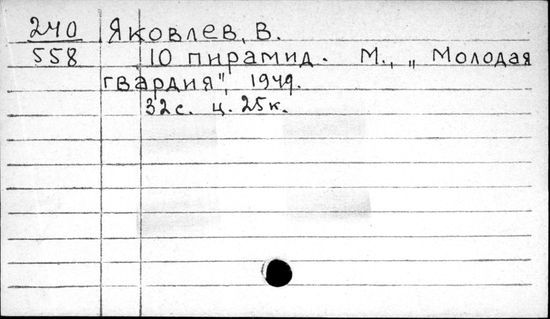 240 Яковлев, В.
558 10 пирамид. М., „Молодая
гвардия", 1949.
32 с. ц. 25 к.